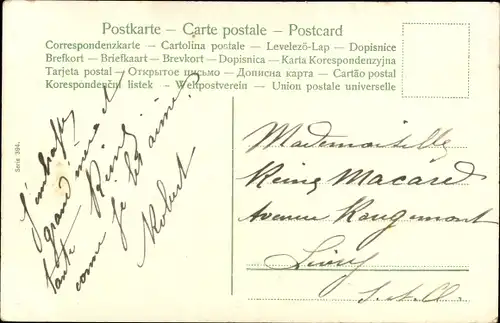 Postkarte – Carte postale – Postcard
Correspondenzkarte – Cartolina postale – Levelező-Lap – Dopisnice
Brefkort – Briefkaart – Brevkort – Dopisnica – Karta Korespondenzyjna
Tarjeta postal – Открытое письмо – Дописна карта – Cartão postal
Korespondenční listek – Weltpostverein – Union postale universelle
Serie 394.
J'embrasse
grand mère et
tante Reine
comme je les aime
Robert
Mademoiselle
Reine Macared
Avenue Rougemont
Livry
S. et O.